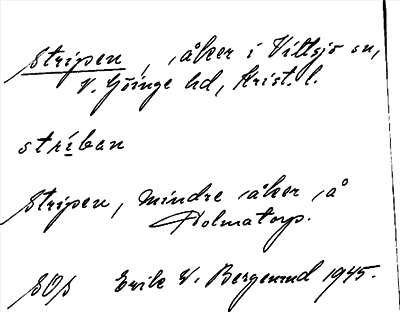 Stripen, åker i Vittsjö sn,
V. Göinge hd, Krist. l.
stríban
Stripen, mindre åker å
Holmatorp.
SOS Erik V. Bergerund 1945.